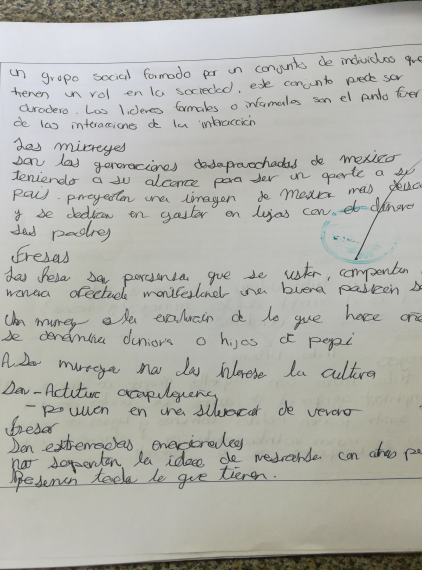 un grupo social formado por un conjunto de individuos que
tienen un rol en la sociedad, este conjunto puede ser
duradero. Los lideres formales o informales son el punto fuer
de las interacciones de la interacción
Los mirreyes
son las generaciones desaprovechadas de mexico
teniendo a su alcance para ser un aporte a su
pais. proyectan una imagen de Mexico mas
y se dedican en gastar en lujos con el dinero
sus padres
Fresas
Las fresa son personas que se visten, comportan
manera afectada una buena posicion
Un mirrey a la evolución de lo que hace
se denomina o hijos de papi
A los mirreyes no les interesa la cultura
Son - Actitud
- en una de verano
fresas
Son extremadas
no soportan la idea de mezclarse con otras pe
Presumen todo lo que tienen.